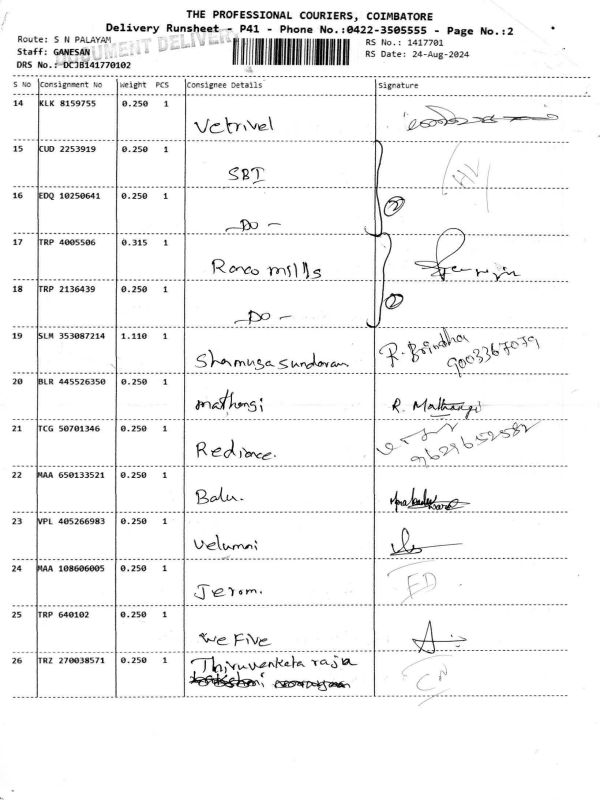 THE PROFESSIONAL COURIERS, COIMBATORE
Delivery Runsheet - P41 - Phone No.:0422-3505555 - Page No.:2
Route: S N PALAYAM
RS No.: 1417701
DOCUMENT DELIVERY
Staff: GANESAN
RS Date: 24-Aug-2024
DRS No.: DCJB141770102
S No Consignment No Weight PCS Consignee Details Signature
14 KLK 8159755 0.250 1
Vetrivel
15 CUD 2253919 0.250 1
SBI
HV
16 EDQ 10250641 0.250 1
2
- DO -
17 TRP 4005506 0.315 1
Ranco mills
18 TRP 2136439 0.250 1
2
- DO -
19 SLM 353087214 1.110 1
Shamuga sundaram R. Brindha
9003367079
20 BLR 445526350 0.250 1
mathangi R. Mathangi
21 TCG 50701346 0.250 1
Redience. 9629652582
22 MAA 650133521 0.250 1
Balu.
23 VPL 405266983 0.250 1
Velumni
24 MAA 108606005 0.250 1
Jerom. ED
25 TRP 640102 0.250 1
We Five
26 TRZ 270038571 0.250 1 Thiruvenkata rajla
CN